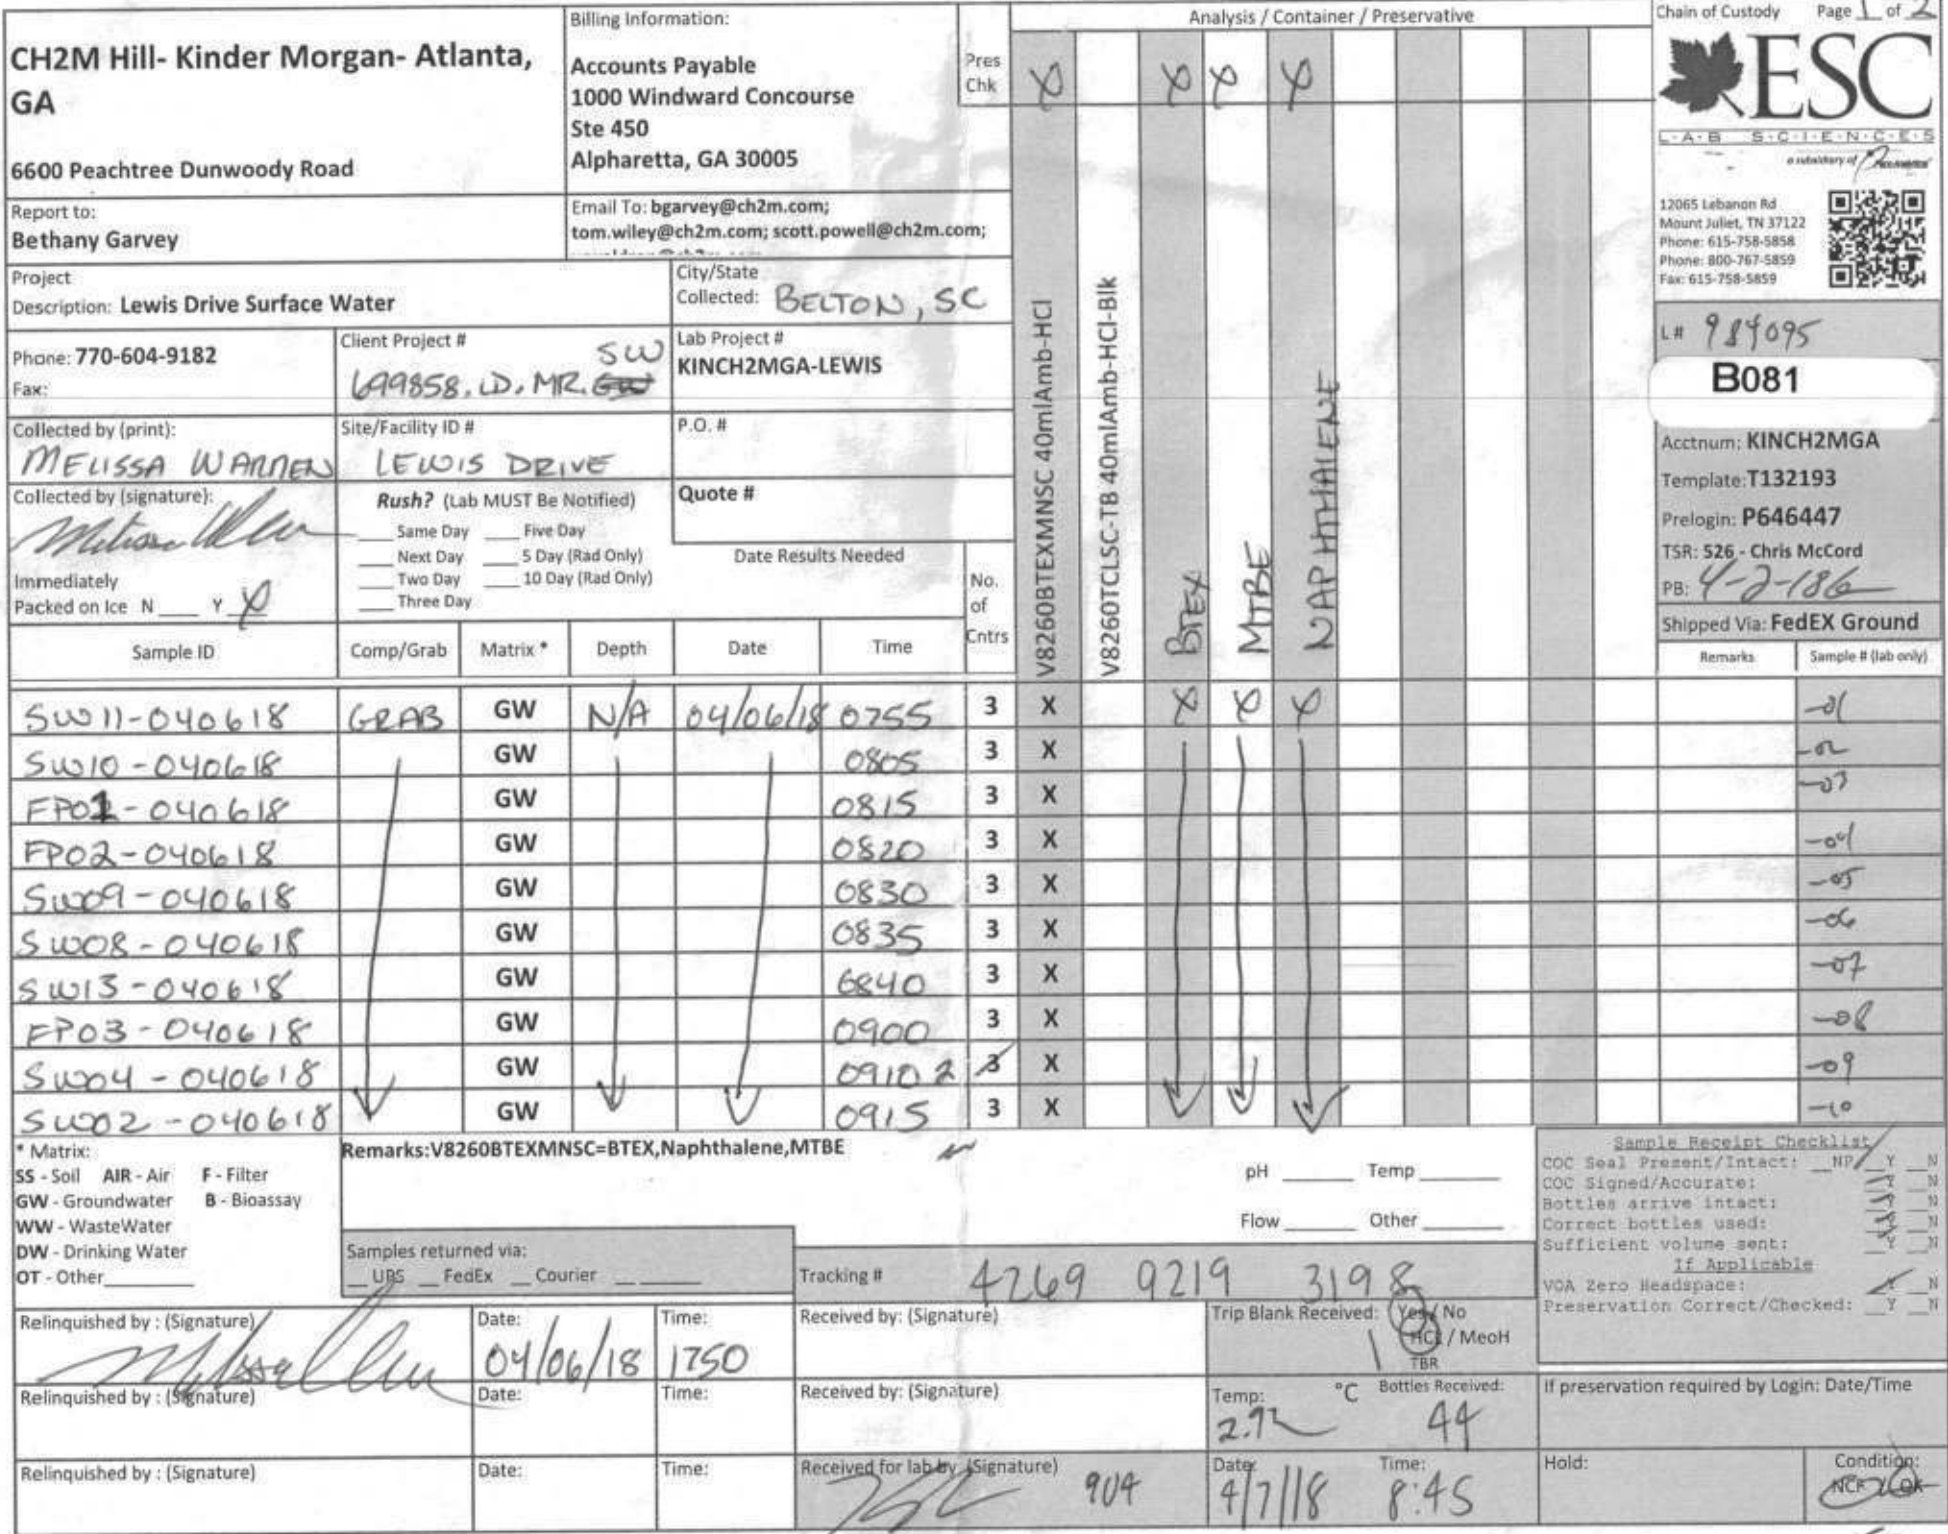 CH2M Hill- Kinder Morgan- Atlanta,
GA
6600 Peachtree Dunwoody Road
Billing Information:
Accounts Payable
1000 Windward Concourse
Ste 450
Alpharetta, GA 30005
Pres
Chk
Analysis / Container / Preservative
X X X X
Chain of Custody Page 1 of 2
ESC
L·A·B S·C·I·E·N·C·E·S
a subsidiary of
12065 Lebanon Rd
Mount Juliet, TN 37122
Phone: 615-758-5858
Phone: 800-767-5859
Fax: 615-758-5859
Report to:
Bethany Garvey
Email To: bgarvey@ch2m.com;
tom.wiley@ch2m.com; scott.powell@ch2m.com;
Project
Description: Lewis Drive Surface Water
City/State
Collected: BELTON, SC
Phone: 770-604-9182
Fax:
Client Project #
SW
699858.LD.MR.GW
Lab Project #
KINCH2MGA-LEWIS
Collected by (print):
MELISSA WARREN
Site/Facility ID #
LEWIS DRIVE
P.O. #
Collected by (signature):
Rush? (Lab MUST Be Notified)
Same Day Five Day
Next Day 5 Day (Rad Only)
Two Day 10 Day (Rad Only)
Three Day
Quote #
Date Results Needed
Immediately
Packed on Ice N Y X
No.
of
Cntrs
V8260BTEXMNSC 40mlAmb-HCl
V8260TCLSC-TB 40mlAmb-HCl-Blk
BTEX
MTBE
NAPHTHALENE
L# 984095
B081
Acctnum: KINCH2MGA
Template: T132193
Prelogin: P646447
TSR: 526 - Chris McCord
PB: 4-2-18
Shipped Via: FedEX Ground
Sample ID Comp/Grab Matrix * Depth Date Time Remarks Sample # (lab only)
SW11-040618 GRAB GW N/A 04/06/18 0755 3 X X X X -01
SW10-040618 GW 0805 3 X -02
FP01-040618 GW 0815 3 X -03
FP02-040618 GW 0820 3 X -04
SW09-040618 GW 0830 3 X -05
SW08-040618 GW 0835 3 X -06
SW13-040618 GW 0840 3 X -07
FP03-040618 GW 0900 3 X -08
SW04-040618 GW 0910 2 3 X -09
SW02-040618 GW 0915 3 X -10
* Matrix:
SS - Soil AIR - Air F - Filter
GW - Groundwater B - Bioassay
WW - WasteWater
DW - Drinking Water
OT - Other
Remarks:V8260BTEXMNSC=BTEX,Naphthalene,MTBE
pH Temp
Flow Other
Sample Receipt Checklist
COC Seal Present/Intact: NP Y N
COC Signed/Accurate: Y N
Bottles arrive intact: Y N
Correct bottles used: Y N
Sufficient volume sent: Y N
If Applicable
VOA Zero Headspace: Y N
Preservation Correct/Checked: Y N
Samples returned via:
UPS FedEx Courier
Tracking # 4269 9219 3198
Relinquished by : (Signature)
Date: 04/06/18
Time: 1750
Received by: (Signature)
Trip Blank Received: Yes / No
HCL / MeoH
1 TBR
Relinquished by : (Signature)
Date:
Time:
Received by: (Signature)
Temp: °C
Bottles Received:
44
If preservation required by Login: Date/Time
Relinquished by : (Signature)
Date:
Time:
Received for lab by: (Signature)
904
Date: 4/7/18
Time: 8:45
Hold:
Condition:
NCF / OK